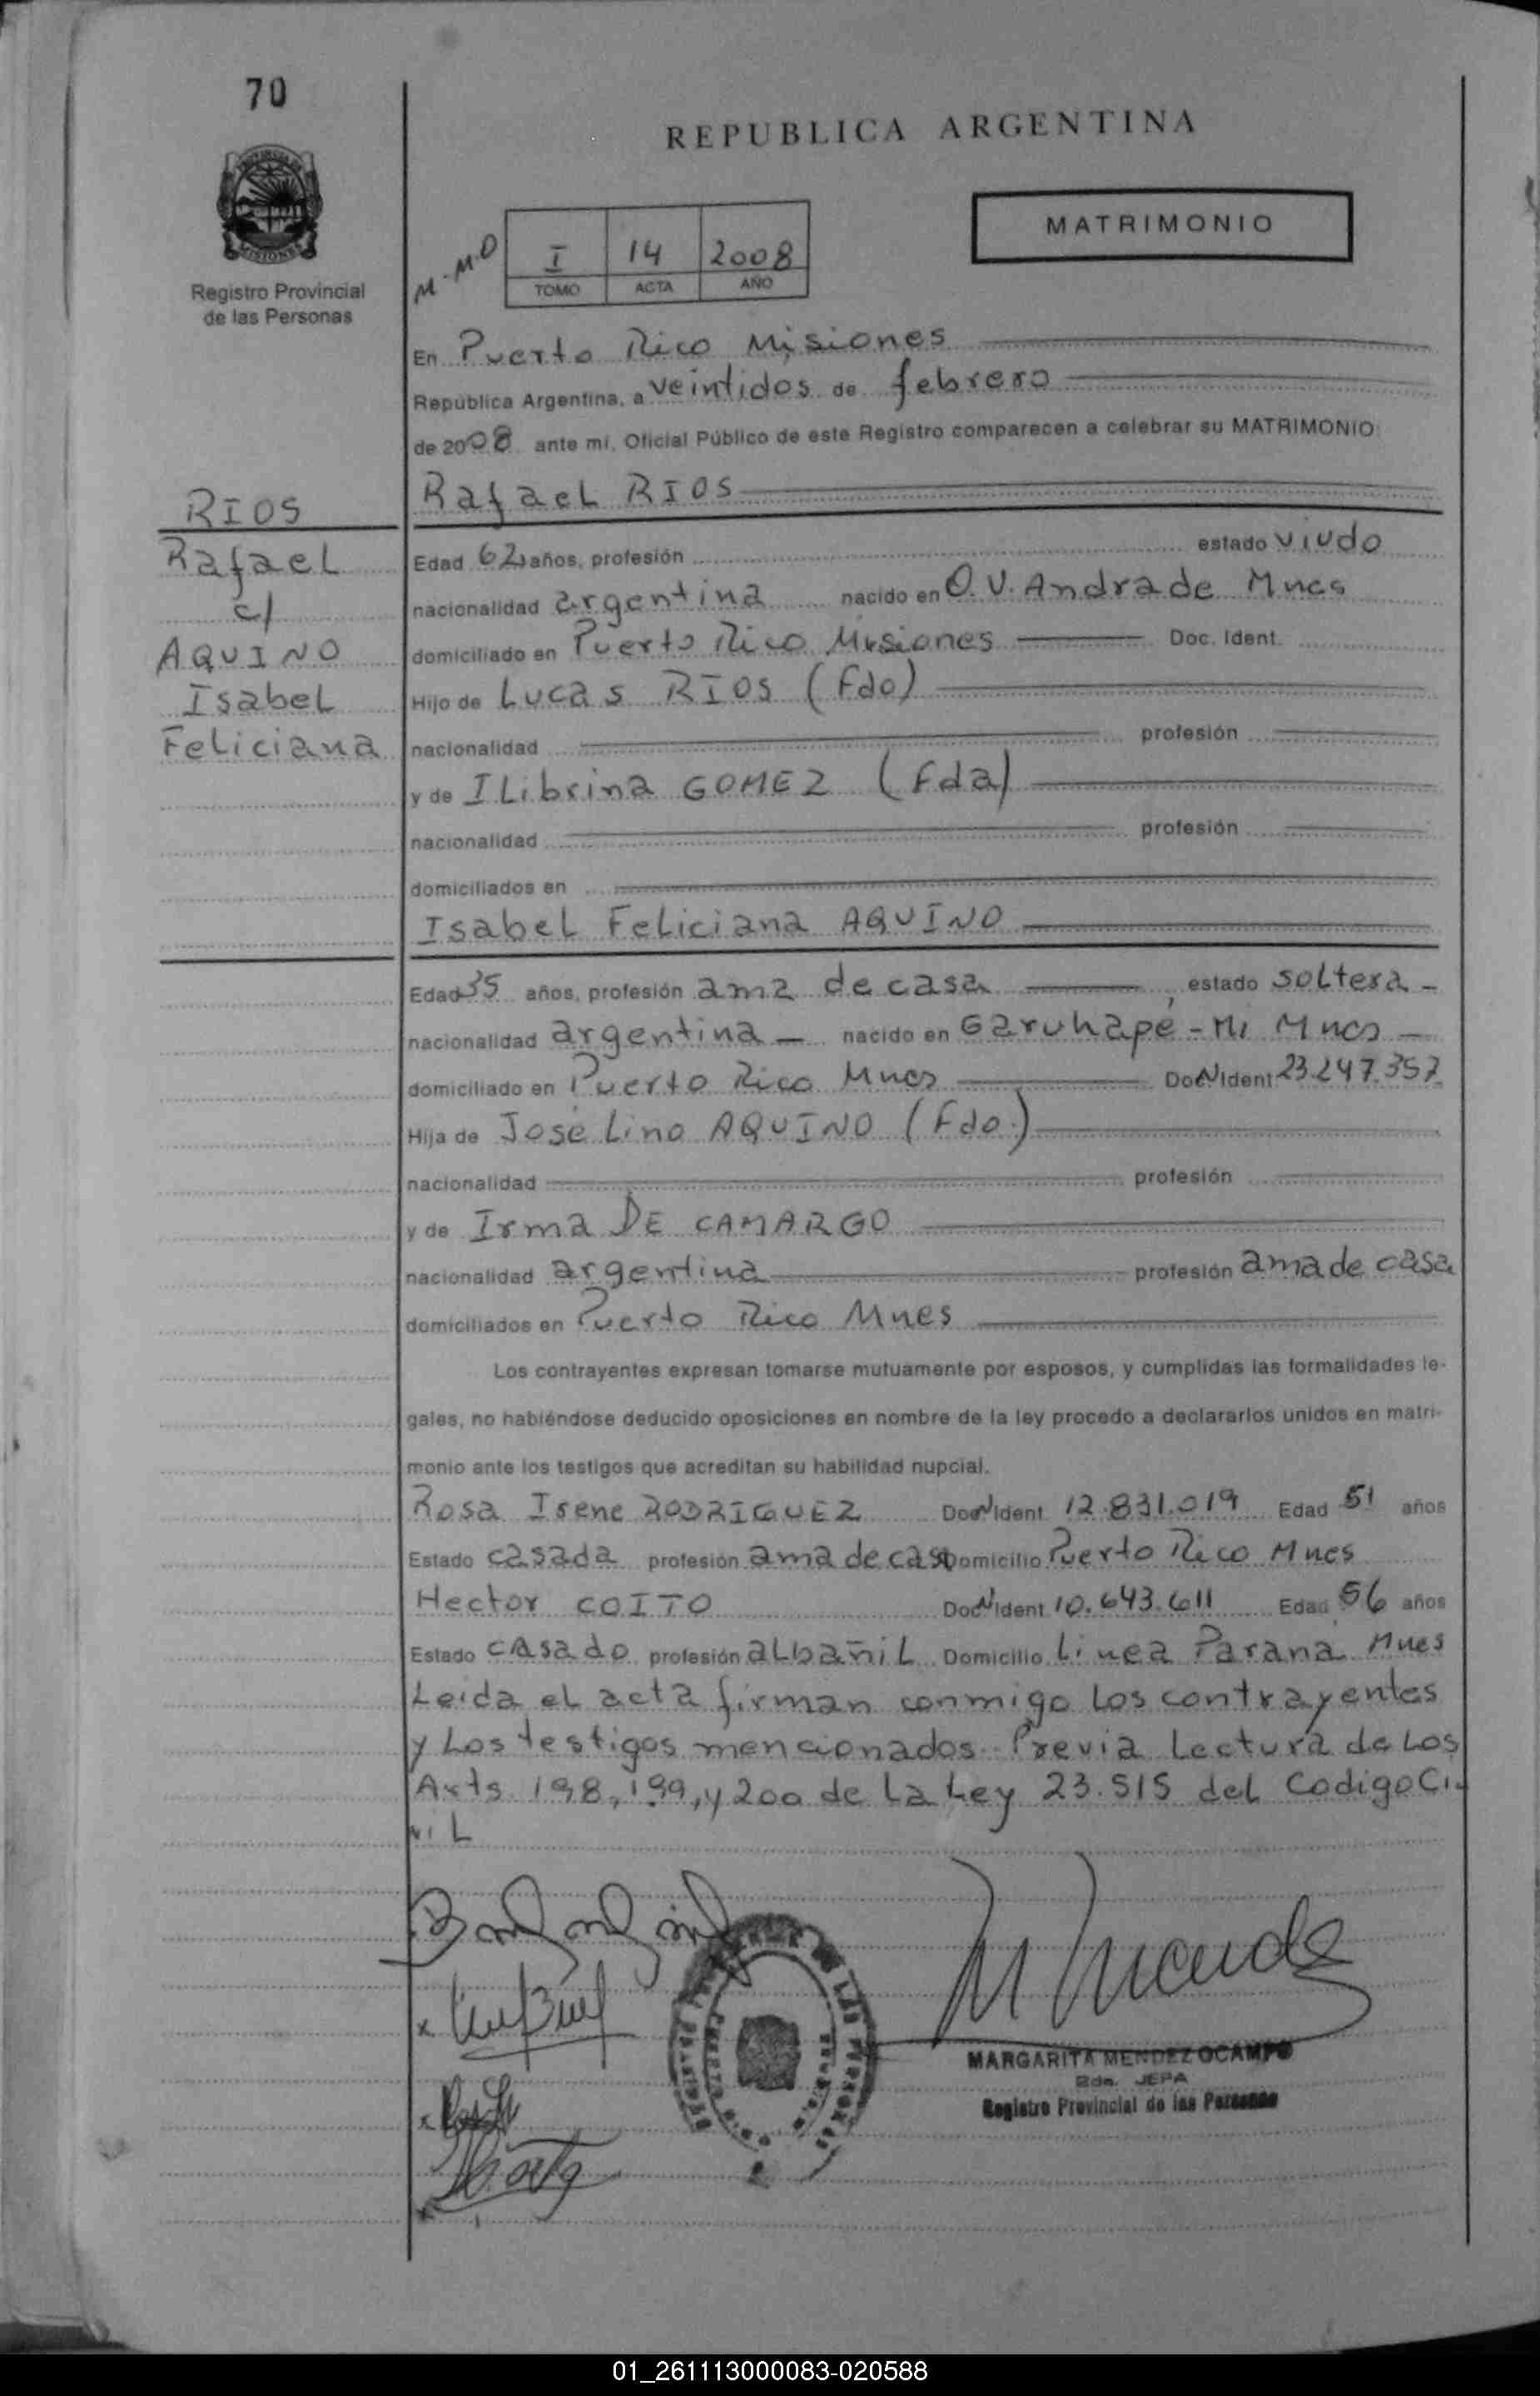 70
REPUBLICA ARGENTINA
MATRIMONIO
PROVINCIA DE
MISIONES
Registro Provincial
de las Personas
M. M. O
I 14 2008
TOMO ACTA AÑO
En Puerto Rico Misiones
República Argentina, a veintidos de febrero
de 2008 ante mí, Oficial Público de este Registro comparecen a celebrar su MATRIMONIO:
Rafael RIOS
RIOS
Rafael
c/
AQUINO
Isabel
Feliciana
Edad 62 años, profesión estado viudo
nacionalidad argentina nacido en O. V. Andrade Mnes
domiciliado en Puerto Rico Misiones Doc. Ident.
Hijo de Lucas RIOS (Fdo)
nacionalidad profesión
y de ILibrina GOMEZ (Fda)
nacionalidad profesión
domiciliados en
Isabel Feliciana AQUINO
Edad 35 años, profesión ama de casa, estado soltera -
nacionalidad argentina - nacido en Garuhapé - Mi Mnes -
domiciliado en Puerto Rico Mnes Doc Ident 23.247.357
Hija de José Lino AQUINO (Fdo.)
nacionalidad profesión
y de Irma DE CAMARGO
nacionalidad argentina profesión ama de casa
domiciliados en Puerto Rico Mnes
Los contrayentes expresan tomarse mutuamente por esposos, y cumplidas las formalidades le-
gales, no habiéndose deducido oposiciones en nombre de la ley procedo a declararlos unidos en matri-
monio ante los testigos que acreditan su habilidad nupcial.
Rosa Irene RODRIGUEZ Doc Ident 12.831.019 Edad 51 años
Estado casada profesión ama de casa Domicilio Puerto Rico Mnes
Hector COITO Doc Ident 10.643.611 Edad 56 años
Estado casado profesión albañil Domicilio Linea Paraná Mnes
Leida el acta firman conmigo los contrayentes
y los testigos mencionados. Previa Lectura de Los
Arts. 198, 199, y 200 de La Ley 23.515 del Codigo Ci
viL
MARGARITA MENDEZ OCAMPO
2da. JEFA
Registro Provincial de las Personas
01_261113000083-020588